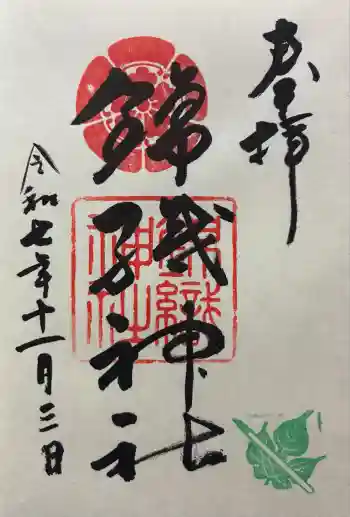 奉拝
錦織神社
令和七年十一月三日
錦織
神社